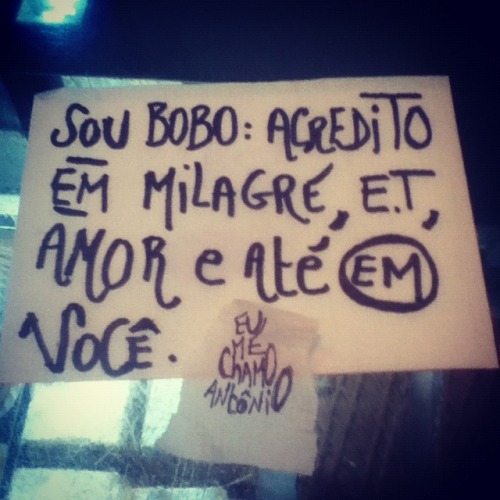 SOU BOBO: ACREDiTO
EM MiLAGRE, E.T,
AMOR e Até EM
VOCÊ.
EU
ME
CHAMO
ANtÔNiO